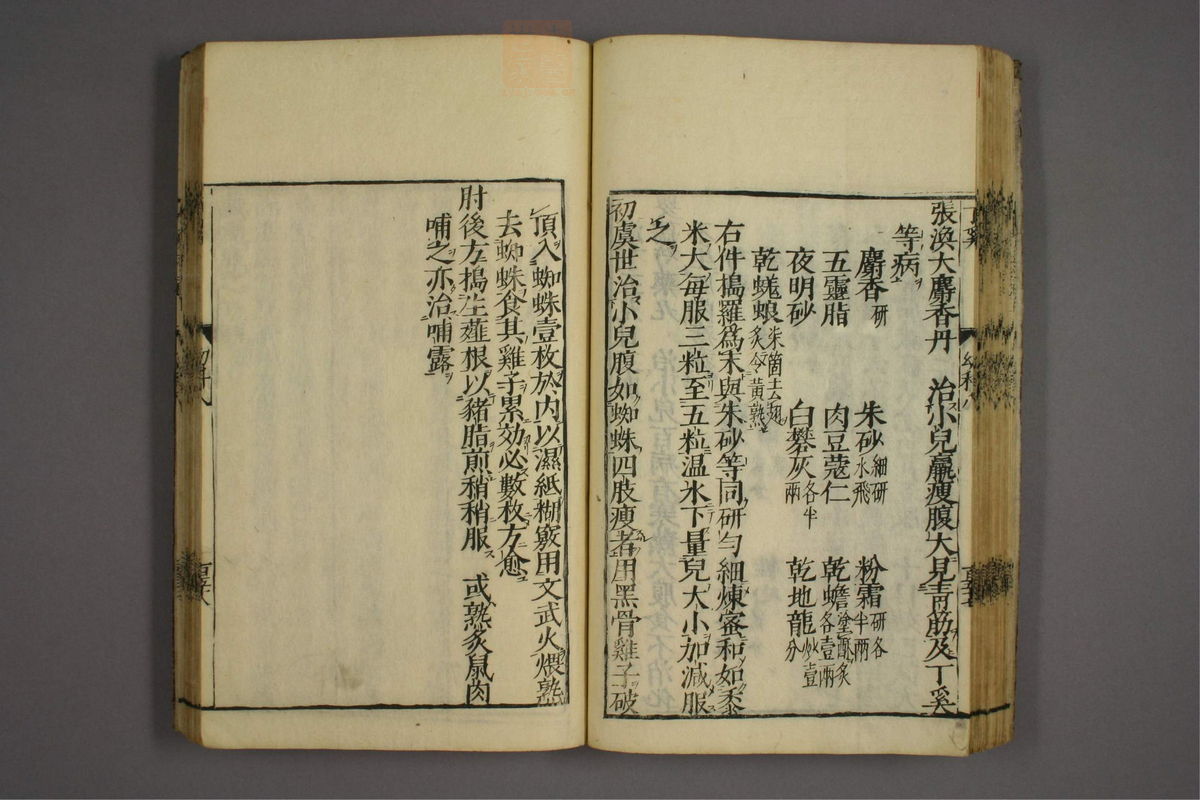 張渙大麝香丹　治小兒羸瘦腹大見青筋及丁奚
等病
麝香研　朱砂細研水飛　粉霜研各半兩
五靈脂　肉豆蔻仁　乾蟾塗酥炙各壹兩
夜明砂　白礬灰各半兩　乾地龍炒壹分
乾蜣蜋炙令黃熟
右件搗羅爲末與朱砂等同研勻細煉蜜和如黍
米大每服三粒至五粒温水下量兒大小加減服
之
初虞世治小兒腹如蜘蛛四肢瘦者用黑骨雞子破
頂入蜘蛛壹枚於内以濕紙糊竅用文武火煨熟
去蜘蛛食其雞子累効必數枚方愈
肘後方搗生薤根以豬脂煎稍稍服　或熟炙鼠肉
哺之亦治哺露